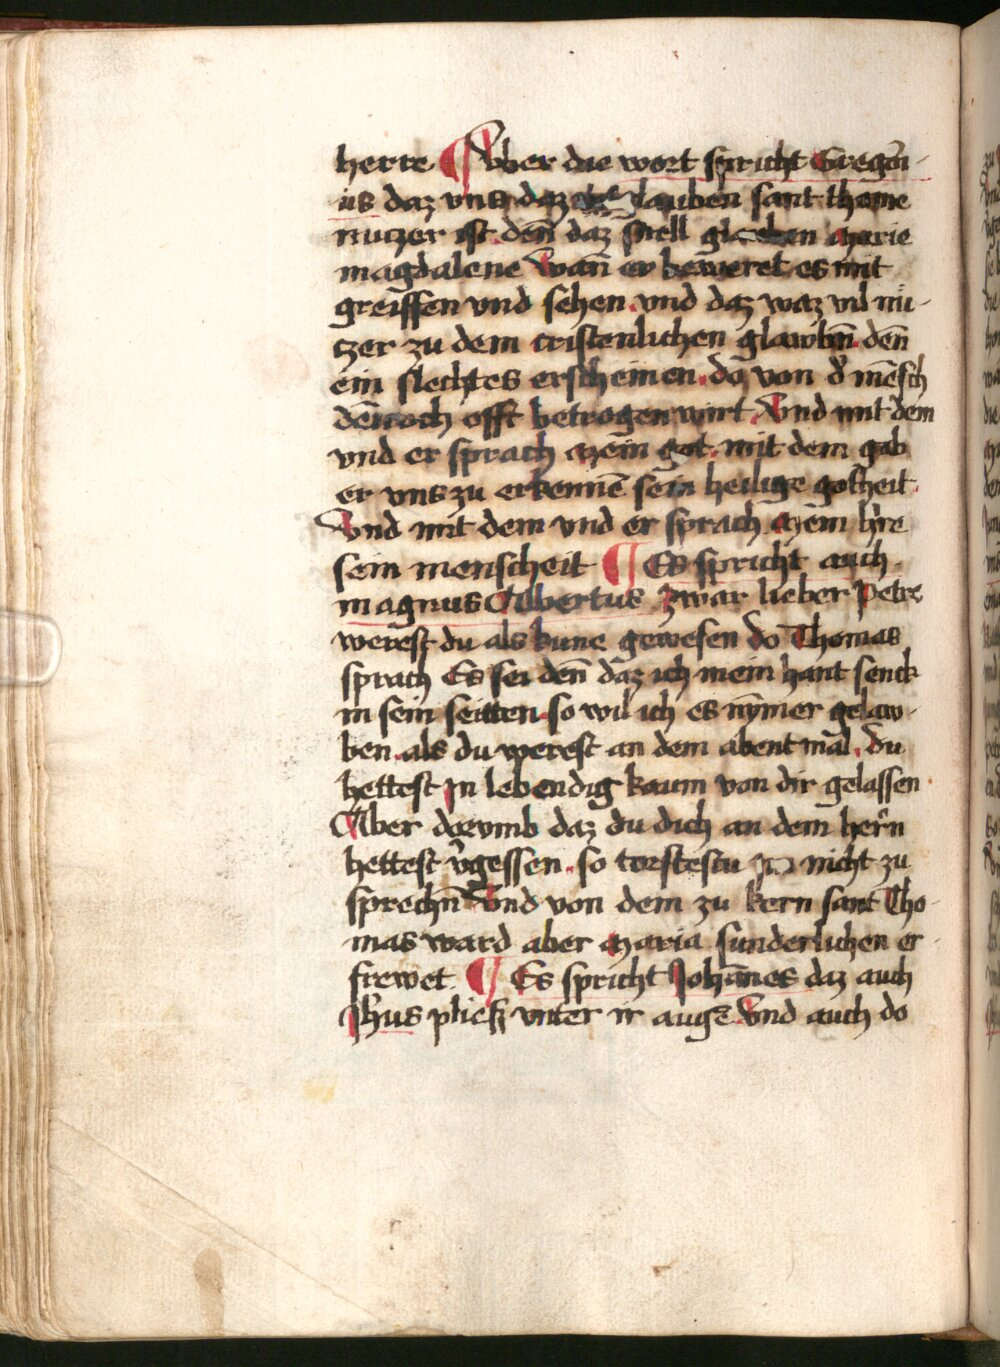 herre ¶ Vber die wort spricht Gregori-
us daz vns daz glauben sant thome
nuczer ist den̄ daz snell glauben marie
magdalene Wan̄ er beweret es mit
greiffen vnd sehen. vnd daz waz vil nu-
czer zu dem cristenlichen glawbn̄ den̄
ein slechtes erscheinen. do von d' mēsch
dēnoch offt betrogen wirt. Vnd mit dem
vnd er sprach mein got. mit dem gab
er vns zu erkennē sein heilige gotheit.
Vnd mit dem vnd er sprach mein h're
sein menscheit ¶ Es spricht auch
magnus Albertus zwar lieber Petre
werest du als kune gewesen do Thomas
sprach Es sei den̄ daz ich mein hant senck
in sein seitten. so wil ich es nȳmer gelaw-
ben. als du werest an dem abent mal. du
hettest jn lebendig kaum von dir gelassen.
Aber dorvmb daz du dich an dem hern̄
hettest v'gessen. so torstestu jm nicht zu
sprechn̄ Vnd von dem zu kern sant Tho-
mas ward aber maria sunderlichen er-
frewet ¶ Es spricht Johānes daz auch
Jh'us plickt vnter ir auge Vnd auch do